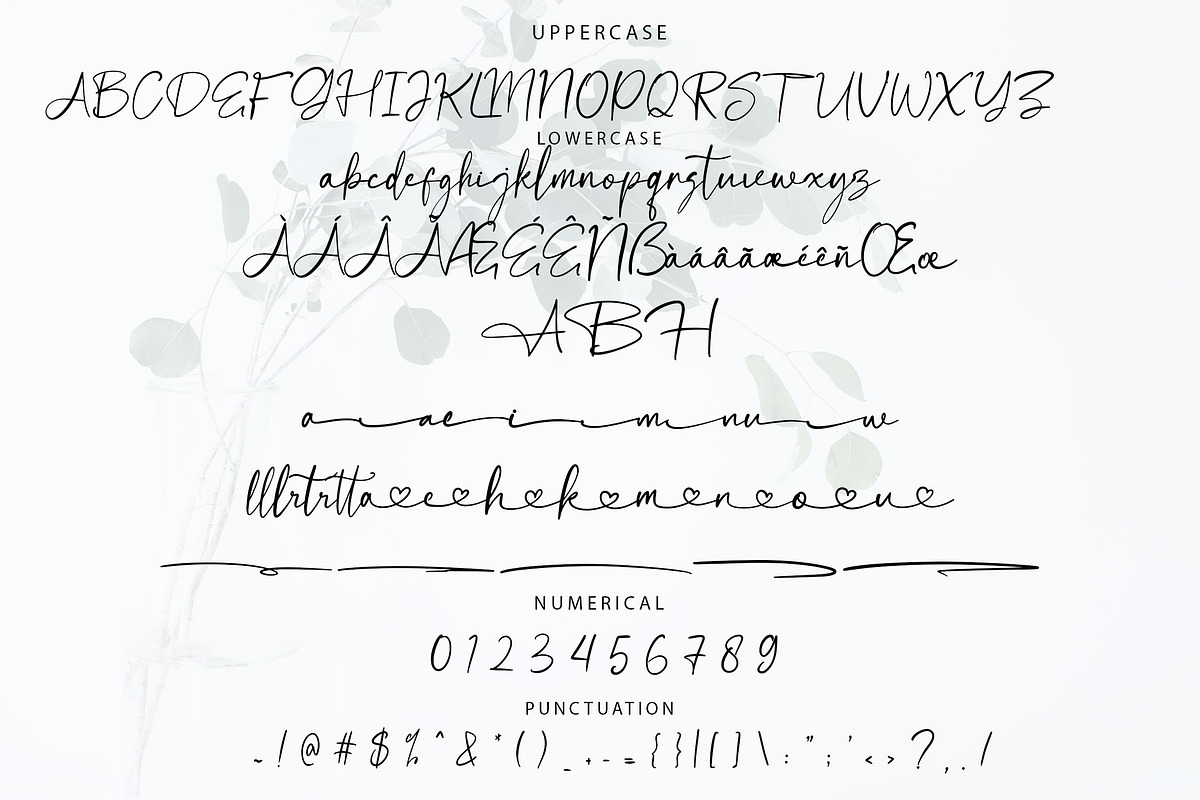 UPPERCASE
ABCDEFGHIJKLMNOPQRSTUVWXYZ
LOWERCASE
abcdefghijklmnopqrstuvwxyz
ÀÁÂÃÆÉÊÑßàáâãæéêñŒœ
ABH
a ae i m nu w
lllrtrttta♡e♡h♡k♡m♡n♡o♡u♡
NUMERICAL
0123456789
PUNCTUATION
~!@#$%^&*()_+-={}|[]\:";'<>?,./